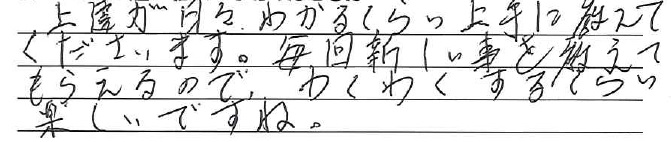 上達が日々わかるくらい上手に教えて
くださいます。毎回新しい事を教えて
もらえるので、わくわくするくらい
楽しいですね。